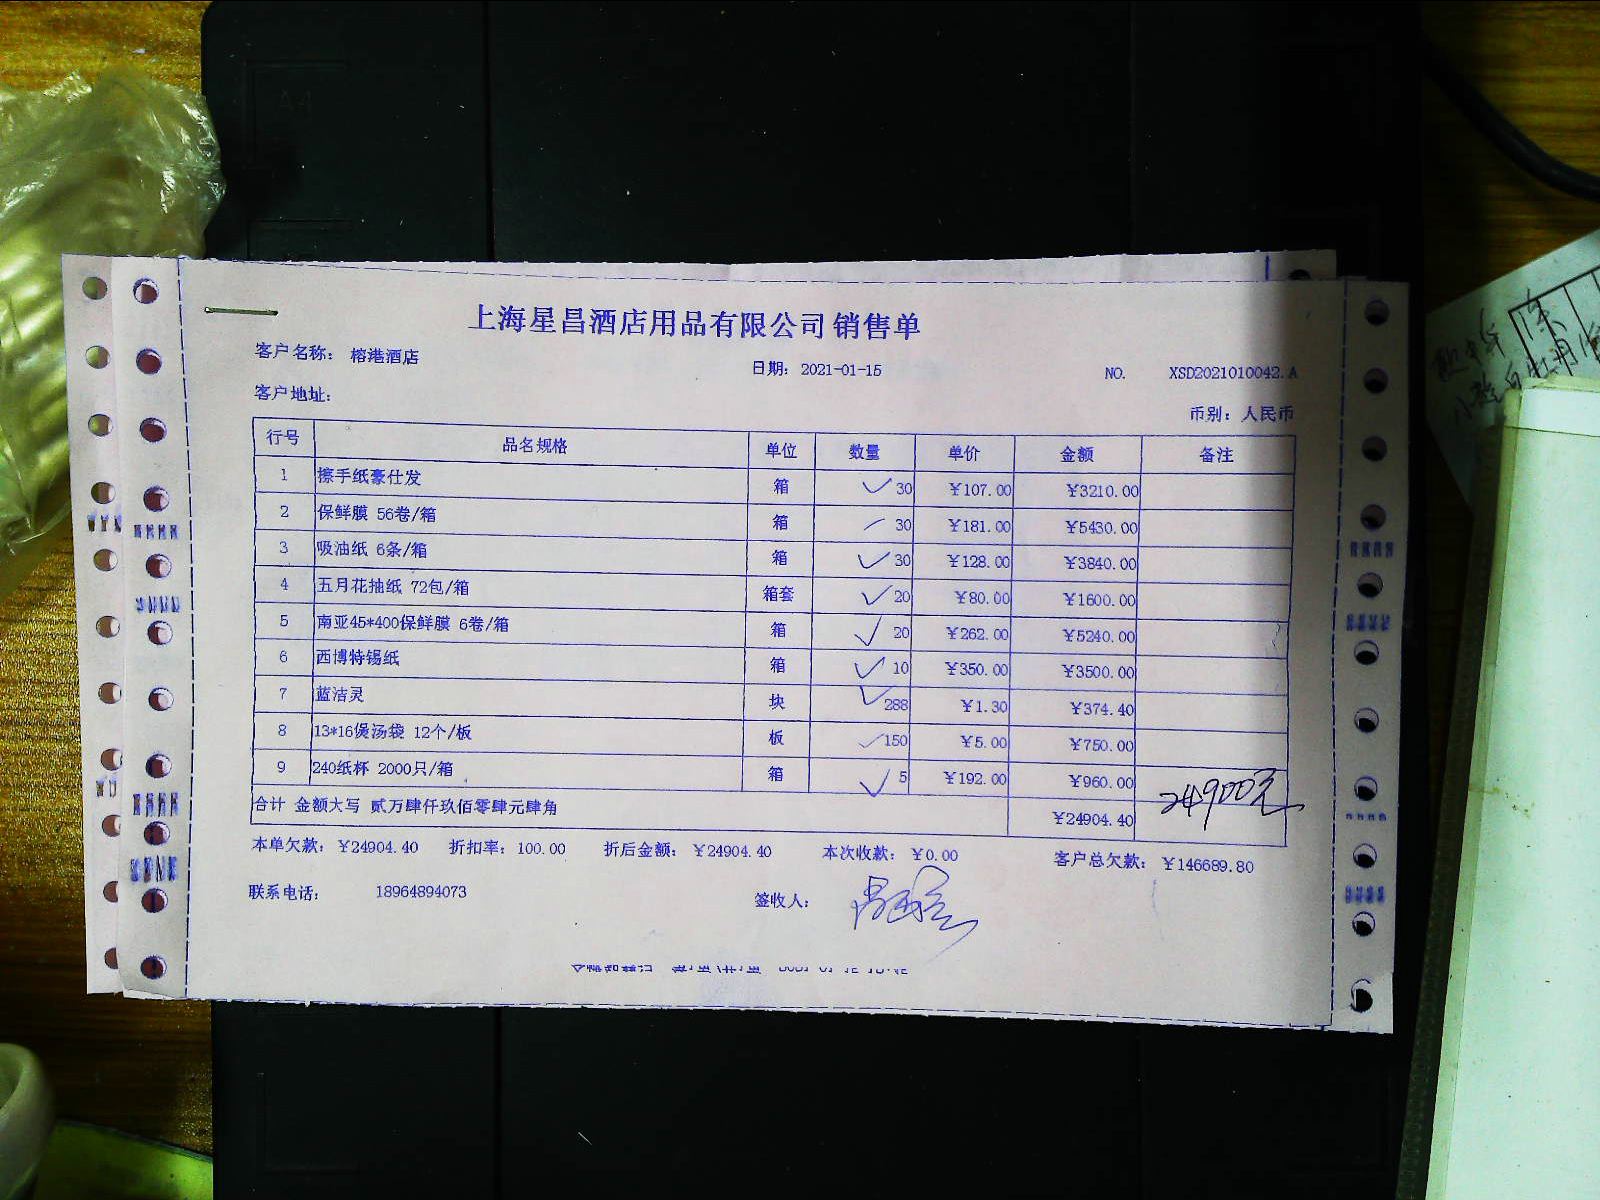 上海星昌酒店用品有限公司 销售单
客户名称： 榕港酒店 日期： 2021-01-15 NO. XSD2021010042.A
客户地址： 币别：人民币
行号 品名规格 单位 数量 单价 金额 备注
1 擦手纸豪仕发 箱 30 ¥107.00 ¥3210.00
2 保鲜膜 56卷/箱 箱 30 ¥181.00 ¥5430.00
3 吸油纸 6条/箱 箱 30 ¥128.00 ¥3840.00
4 五月花抽纸 72包/箱 箱套 20 ¥80.00 ¥1600.00
5 南亚45*400保鲜膜 6卷/箱 箱 20 ¥262.00 ¥5240.00
6 西博特锡纸 箱 10 ¥350.00 ¥3500.00
7 蓝洁灵 块 288 ¥1.30 ¥374.40
8 13*16煲汤袋 12个/板 板 150 ¥5.00 ¥750.00
9 240纸杯 2000只/箱 箱 5 ¥192.00 ¥960.00
合计 金额大写 贰万肆仟玖佰零肆元肆角 ¥24904.40 24900元
本单欠款： ¥24904.40 折扣率：100.00 折后金额： ¥24904.40 本次收款： ¥0.00 客户总欠款： ¥146689.80
联系电话： 18964894073 签收人：
A4